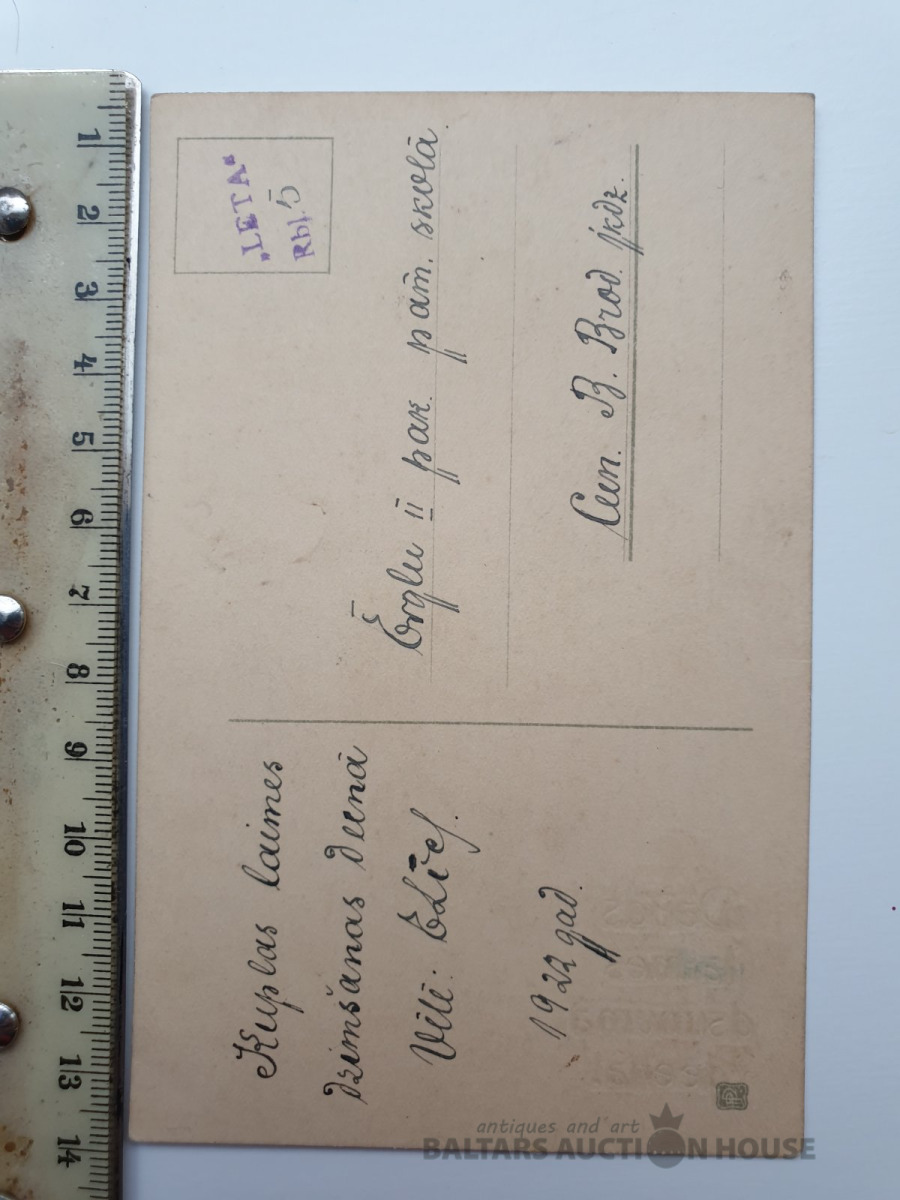 Kuplas laimes
dzimšanas deenā
Vēlē.
1922 gad.
"LETA"
Rbļ. 5
Ērgļu II pak. pam. skolā.
Cen. B. Brod. jkdz.
1 2 3 4 5 6 7 8 9 10 11 12 13 14
antiques and art
BALTARS AUCTION HOUSE